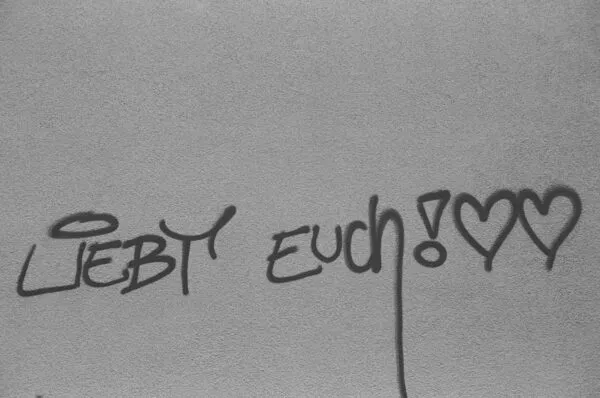 LIEBT EUch!♡♡